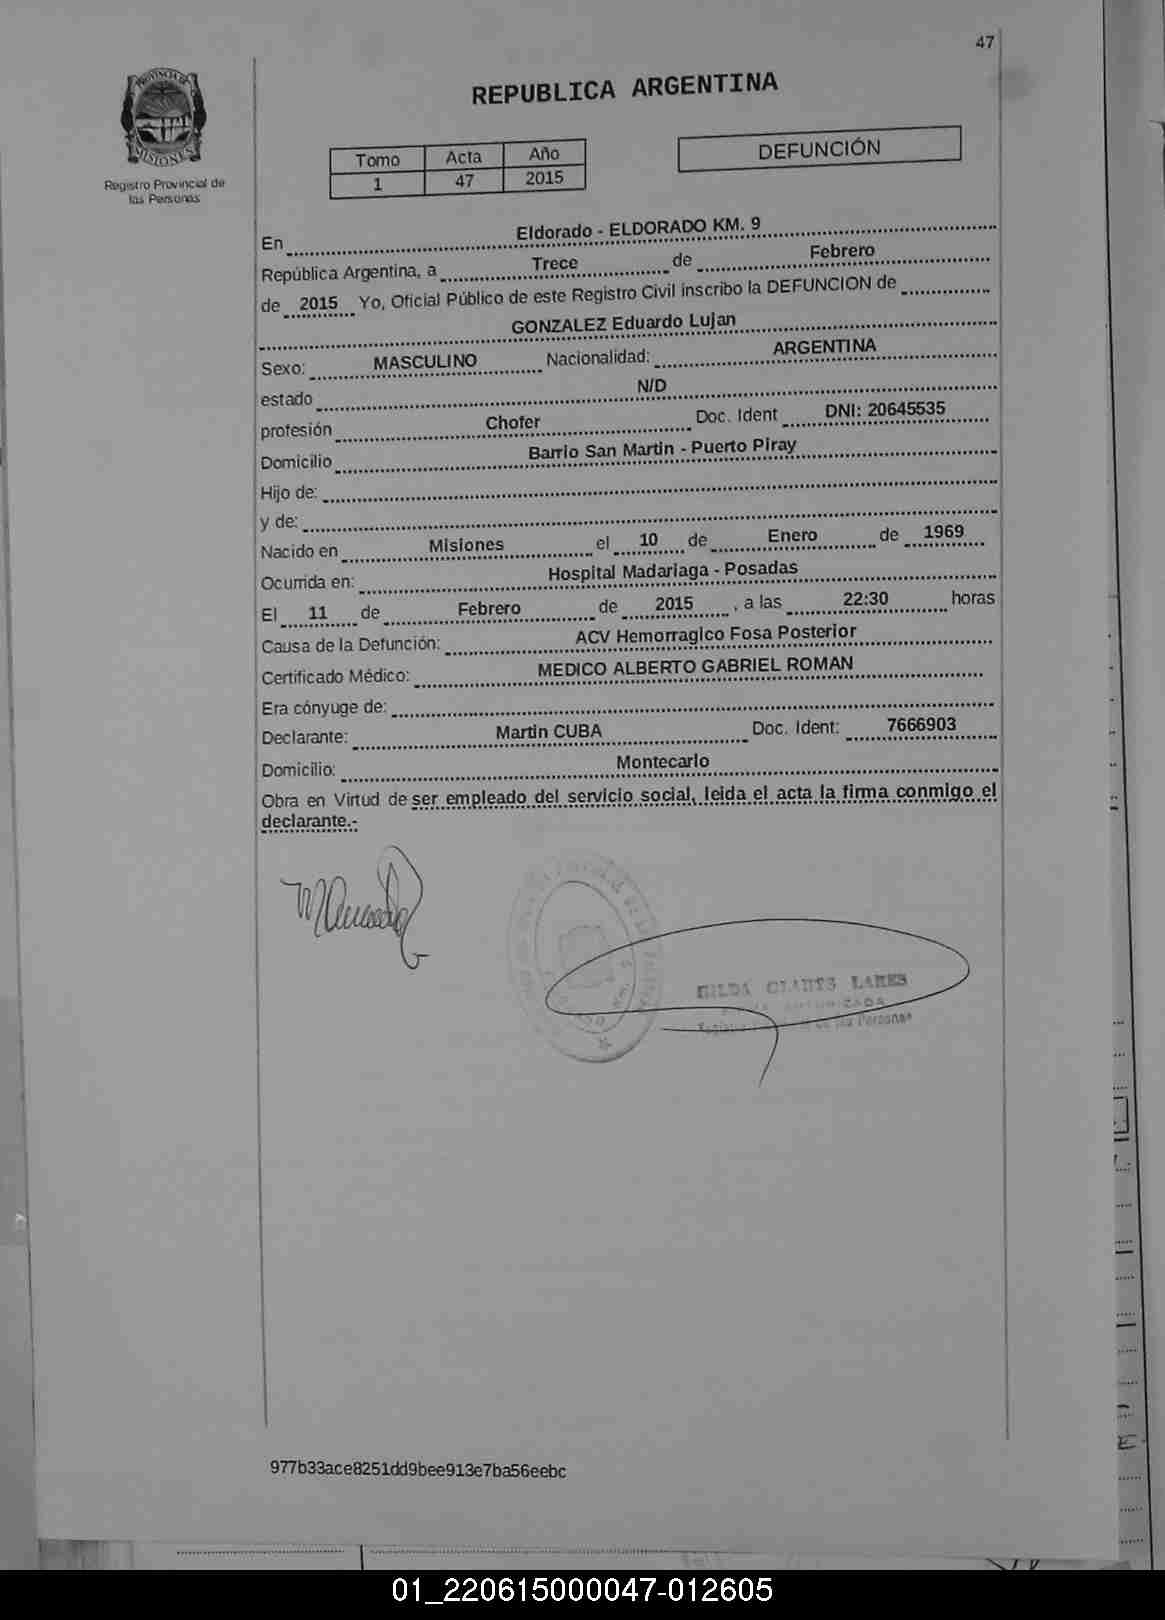 47
PROVINCIA DE
MISIONES
Registro Provincial de
las Personas
REPUBLICA ARGENTINA
Tomo Acta Año
1 47 2015
DEFUNCIÓN
En Eldorado - ELDORADO KM. 9
República Argentina, a Trece de Febrero
de 2015 Yo, Oficial Público de este Registro Civil inscribo la DEFUNCION de
GONZALEZ Eduardo Lujan
Sexo: MASCULINO Nacionalidad: ARGENTINA
estado N/D
profesión Chofer Doc. Ident DNI: 20645535
Domicilio Barrio San Martin - Puerto Piray
Hijo de:
y de:
Nacido en Misiones el 10 de Enero de 1969
Ocurrida en: Hospital Madariaga - Posadas
El 11 de Febrero de 2015 , a las 22:30 horas
Causa de la Defunción: ACV Hemorragico Fosa Posterior
Certificado Médico: MEDICO ALBERTO GABRIEL ROMAN
Era cónyuge de:
Declarante: Martin CUBA Doc. Ident: 7666903
Domicilio: Montecarlo
Obra en Virtud de ser empleado del servicio social, leida el acta la firma conmigo el
declarante.-
LARES
de las Personas
977b33ace8251dd9bee913e7ba56eebc
01_220615000047-012605